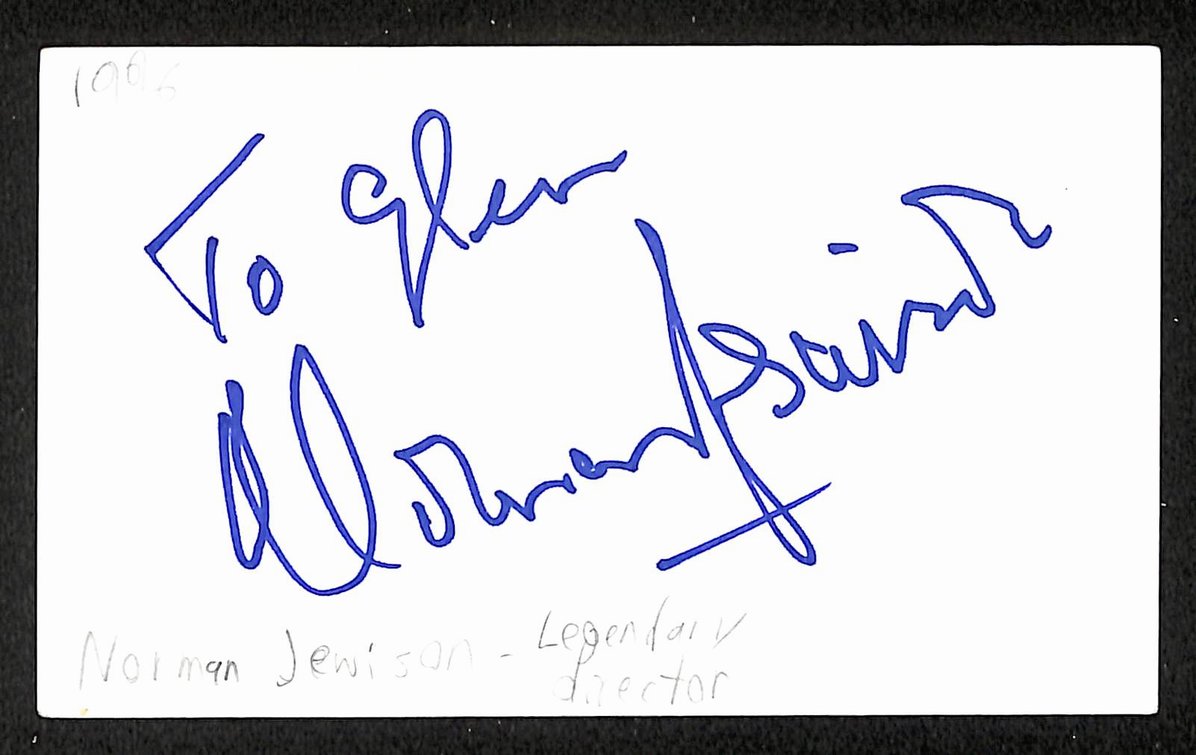 1996
To Glen
Norman Jewison
Norman Jewison - Legendary
director